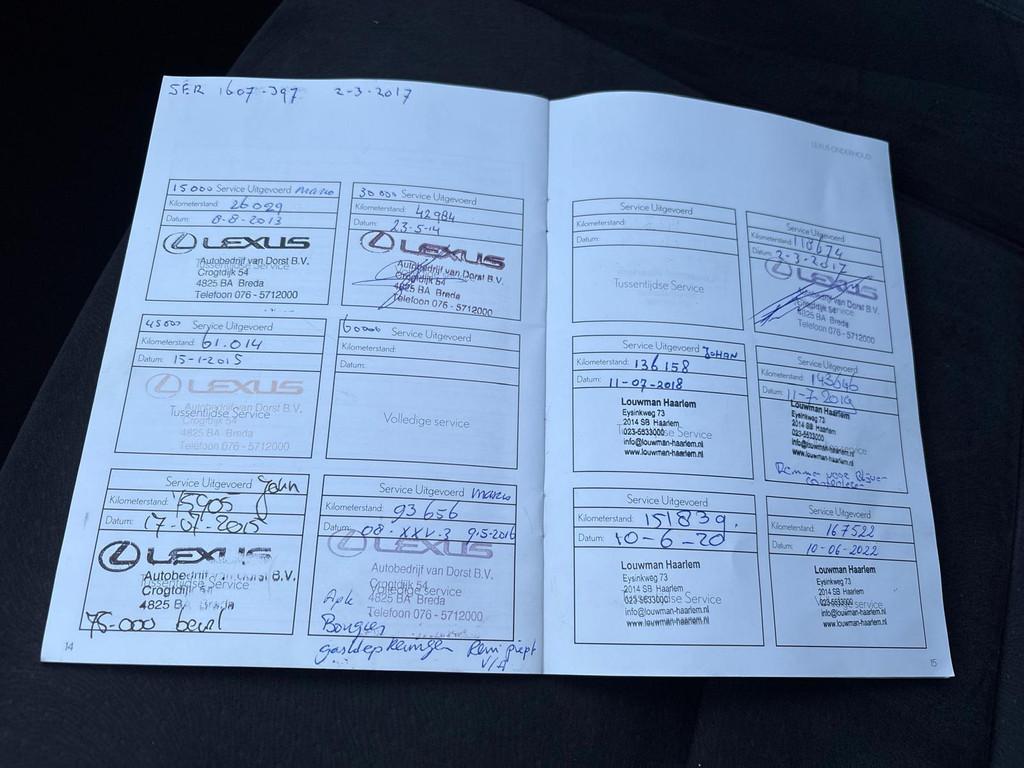 SER 1607-397 2-3-2017
15000 Service Uitgevoerd Mario
Kilometerstand: 26029
Datum: 8-8-2013
LEXUS
Autobedrijf van Dorst B.V.
Tussentijdse Service
Crogtdijk 54
4825 BA Breda
Telefoon 076 - 5712000
30 000 Service Uitgevoerd
Kilometerstand: 42984
Datum: 23-5-14
LEXUS
Autobedrijf van Dorst B.V.
Crogtdijk 54
4825 BA Breda
Telefoon 076 - 5712000
45000 Service Uitgevoerd
Kilometerstand: 61.014
Datum: 15-1-2015
LEXUS
Autobedrijf van Dorst B.V.
Tussentijdse Service
Crogtdijk 54
4825 BA Breda
Telefoon 076 - 5712000
60000 Service Uitgevoerd
Kilometerstand:
Datum:
Volledige service
Service Uitgevoerd John
Kilometerstand: 75905
Datum: 17-07-2015
LEXUS
Autobedrijf van Dorst B.V.
Tussentijdse Service
Crogtdijk 54
4825 BA Breda
75-000 beurt
Service Uitgevoerd Mario
Kilometerstand: 93656
Datum: 08-XXV-3 9-5-2016
LEXUS
Autobedrijf van Dorst B.V.
Crogtdijk 54
Volledige service
4825 BA Breda
Telefoon 076 - 5712000
Bougies
gasklep Reinigen Rem piept
V/A
14
LEXUS ONDERHOUD
Service Uitgevoerd
Kilometerstand:
Datum:
Tussentijdse Service
Service Uitgevoerd
Kilometerstand: 110674
Datum: 2-3-2017
LEXUS
Autobedrijf van Dorst B.V.
Crogtdijk 54
4825 BA Breda
Telefoon 076 - 5712000
Service Uitgevoerd JOHAN
Kilometerstand: 136158
Datum: 11-07-2018
Louwman Haarlem
Eysinkweg 73
2014 SB Haarlem
023-5533000
info@louwman-haarlem.nl
www.louwman-haarlem.nl
Service Uitgevoerd
Kilometerstand: 143646
Datum: 11-7-2019
Louwman Haarlem
Eysinkweg 73
2014 SB Haarlem
023-5533000
info@louwman-haarlem.nl
www.louwman-haarlem.nl
Remmen voor
Service Uitgevoerd
Kilometerstand: 151839.
Datum: 10-6-20
Louwman Haarlem
Eysinkweg 73
2014 SB Haarlem
023-5533000
info@louwman-haarlem.nl
www.louwman-haarlem.nl
Service Uitgevoerd
Kilometerstand: 167522
Datum: 10-06-2022
Louwman Haarlem
Eysinkweg 73
2014 SB Haarlem
023-5533000
info@louwman-haarlem.nl
www.louwman-haarlem.nl
15